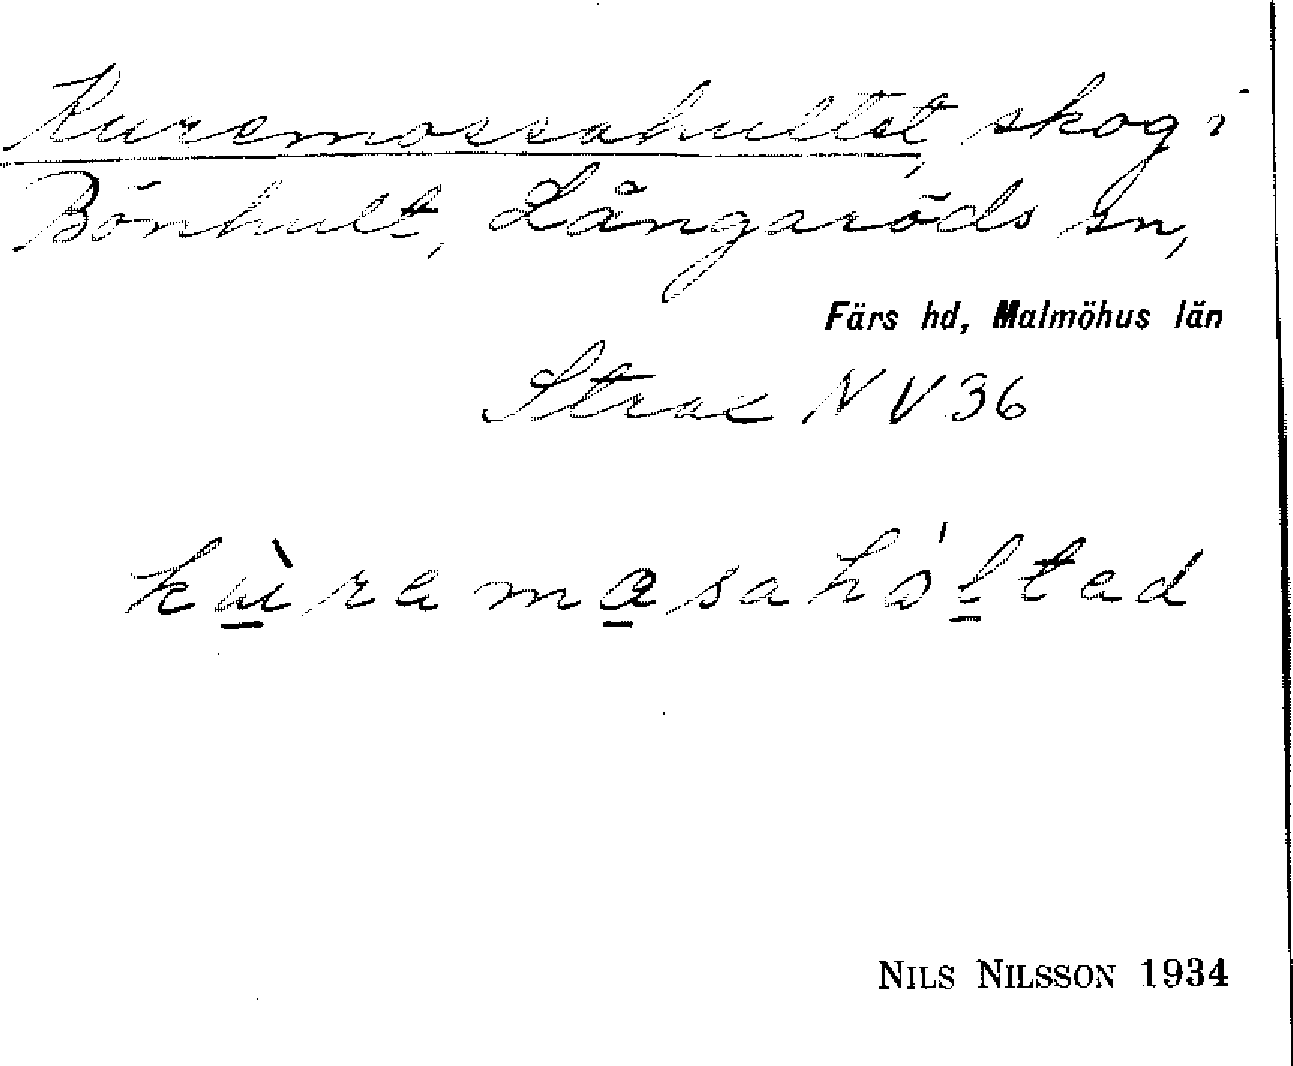 Kuremossahultet, skog i
Bönhult, Långaröds sn,
Färs hd, Malmöhus län
Strax NV 36
kùramasahòltad
NILS NILSSON 1934